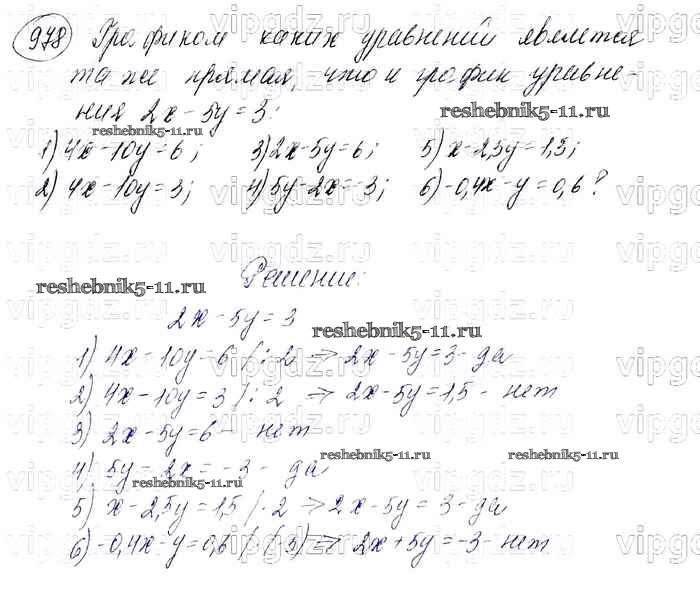 978 Графиком каких уравнений является
та же прямая, что и график уравне-
ния 2x - 5y = 3:
reshebnik5-11.ru
reshebnik5-11.ru
1) 4x - 10y = 6; 3) 2x - 5y = 6; 5) x - 2,5y = 1,5;
2) 4x - 10y = 3; 4) 5y - 2x = -3; 6) -0,4x - y = 0,6?
Решение:
reshebnik5-11.ru
2x - 5y = 3
reshebnik5-11.ru
1) 4x - 10y = 6 /: 2 => 2x - 5y = 3 - да
2) 4x - 10y = 3 /: 2 => 2x - 5y = 1,5 - нет
3) 2x - 5y = 6 - нет
4) 5y - 2x = -3 - да
reshebnik5-11.ru
reshebnik5-11.ru
5) x - 2,5y = 1,5 /· 2 => 2x - 5y = 3 - да
6) -0,4x - y = 0,6 /·(-5) => 2x + 5y = -3 - нет
vipgdz.ru